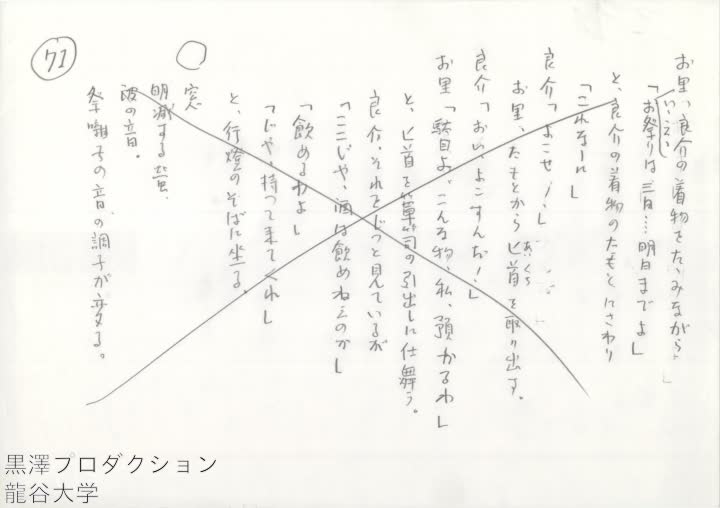 71
お里、良介の着物をたゝみながら、
「いゝえ、お祭りは三日…明日までよ」
と、良介の着物のたもとにさわり
「これなーに」
良介「よこせ！」
お里、たもとから匕首を取り出す。
あいくち
良介「おい、よこすんだ！」
お里「駄目よ、こんな物、私、預かるわ」
と、匕首を箪笥の引出しに仕舞う。
良介、それをじっと見ているが
「ここじゃ、酒は飲めねえのか」
「飲めるわよ」
「じゃ、持って来てくれ」
と、行燈のそばに坐る。
○
窓
明滅する蛍。
波の音。
祭囃子の音の調子が変る。
黒澤プロダクション
龍谷大学